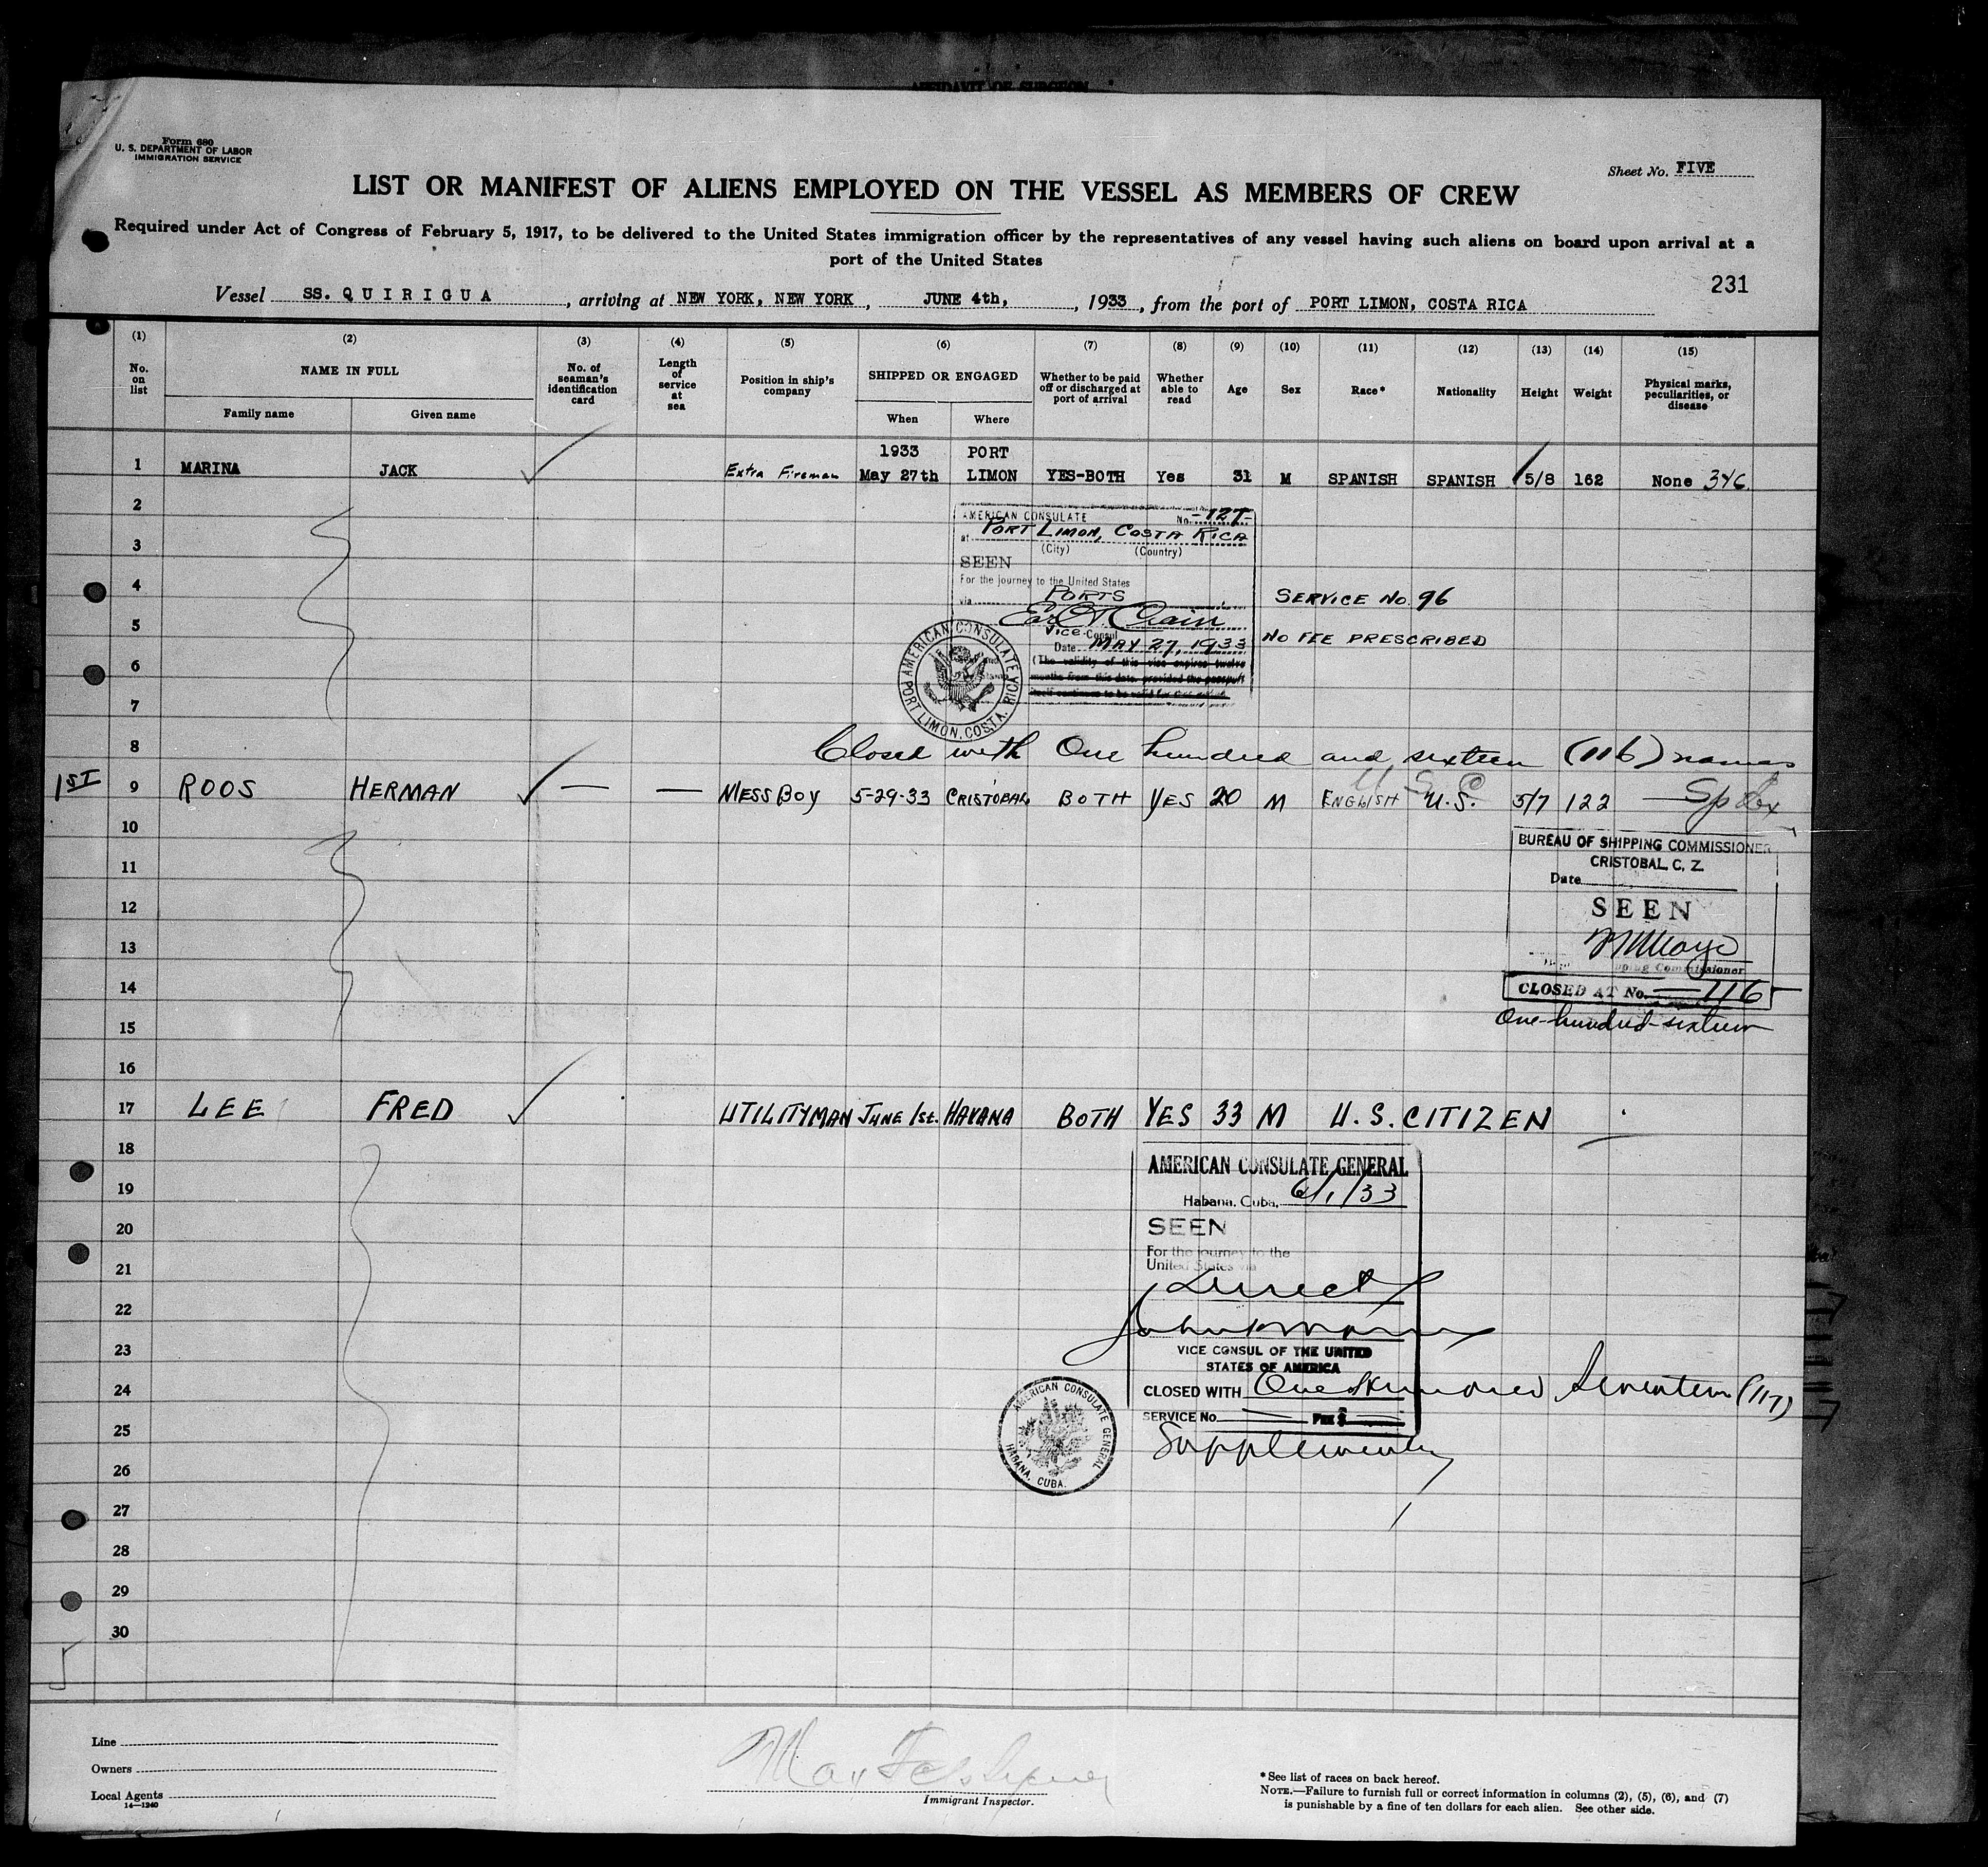 AFFIDAVIT OF SURGEON
Form 680
U. S. DEPARTMENT OF LABOR
IMMIGRATION SERVICE
Sheet No. FIVE
LIST OR MANIFEST OF ALIENS EMPLOYED ON THE VESSEL AS MEMBERS OF CREW
Required under Act of Congress of February 5, 1917, to be delivered to the United States immigration officer by the representatives of any vessel having such aliens on board upon arrival at a
port of the United States
231
Vessel SS. QUIRIGUA, arriving at NEW YORK, NEW YORK, JUNE 4th, 1933, from the port of PORT LIMON, COSTA RICA
(1) (2) (3) (4) (5) (6) (7) (8) (9) (10) (11) (12) (13) (14) (15)
No. on list
NAME IN FULL
Family name
Given name
No. of seaman's identification card
Length of service at sea
Position in ship's company
SHIPPED OR ENGAGED
When
Where
Whether to be paid off or discharged at port of arrival
Whether able to read
Age
Sex
Race*
Nationality
Height
Weight
Physical marks, peculiarities, or disease
1933 PORT
1 MARINA JACK Extra Fireman May 27th LIMON YES-BOTH Yes 31 M SPANISH SPANISH 5/8 162 None 346
2
AMERICAN CONSULATE No. -127-
at PORT LIMON, COSTA RICA
3
(City) (Country)
SEEN
For the journey to the United States
4
via PORTS
SERVICE No. 96
5
Vice-Consul
NO FEE PRESCRIBED
Date MAY 27, 1933
6
(The validity of this visa expires twelve
months from this date, provided the passport
7
AMERICAN CONSULATE PORT LIMON, COSTA RICA
8 Closed with One hundred and sixteen (116) names
U S C
1ST 9 ROOS HERMAN — — MESSBOY 5-29-33 CRISTOBAL BOTH YES 20 M ENGLISH U.S. 5/7 122
10
BUREAU OF SHIPPING COMMISSIONER
CRISTOBAL C. Z.
11
Date
12
SEEN
13
Shipping Commissioner
14
CLOSED AT No. 116
15
One-hundred-sixteen
16
17 LEE FRED UTILITYMAN June 1st. HAVANA BOTH YES 33 M U.S. CITIZEN
18
AMERICAN CONSULATE GENERAL
19
Habana, Cuba, 6/1/33
20
SEEN
For the journey to the
United States via
21
Direct
22
23
VICE CONSUL OF THE UNITED
STATES OF AMERICA
24
CLOSED WITH One Hundred Seventeen (117)
SERVICE No. FEE $
25
Supplementary
AMERICAN CONSULATE GENERAL HABANA, CUBA.
26
27
28
29
30
Line
Owners
Local Agents
14—1240
Immigrant Inspector.
*See list of races on back hereof.
NOTE.—Failure to furnish full or correct information in columns (2), (5), (6), and (7)
is punishable by a fine of ten dollars for each alien. See other side.